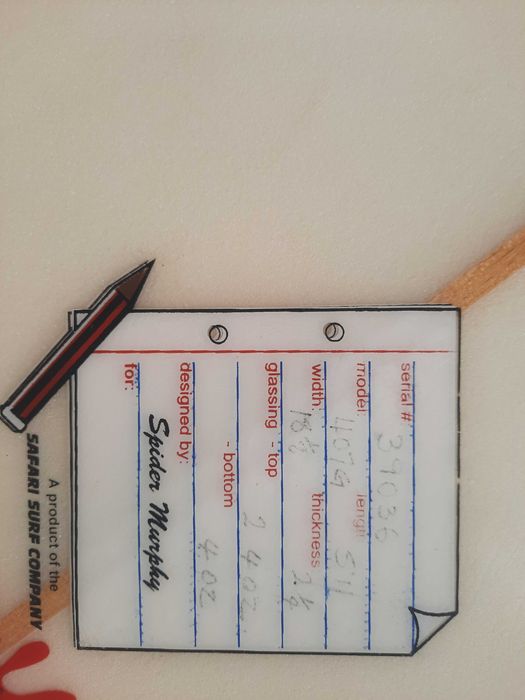 serial # 39036
model: length 5'11
width: 18 thickness 2
glassing - top 2 4oz
- bottom 4oz
designed by:
Spider Murphy
for:
A product of the
SAFARI SURF COMPANY